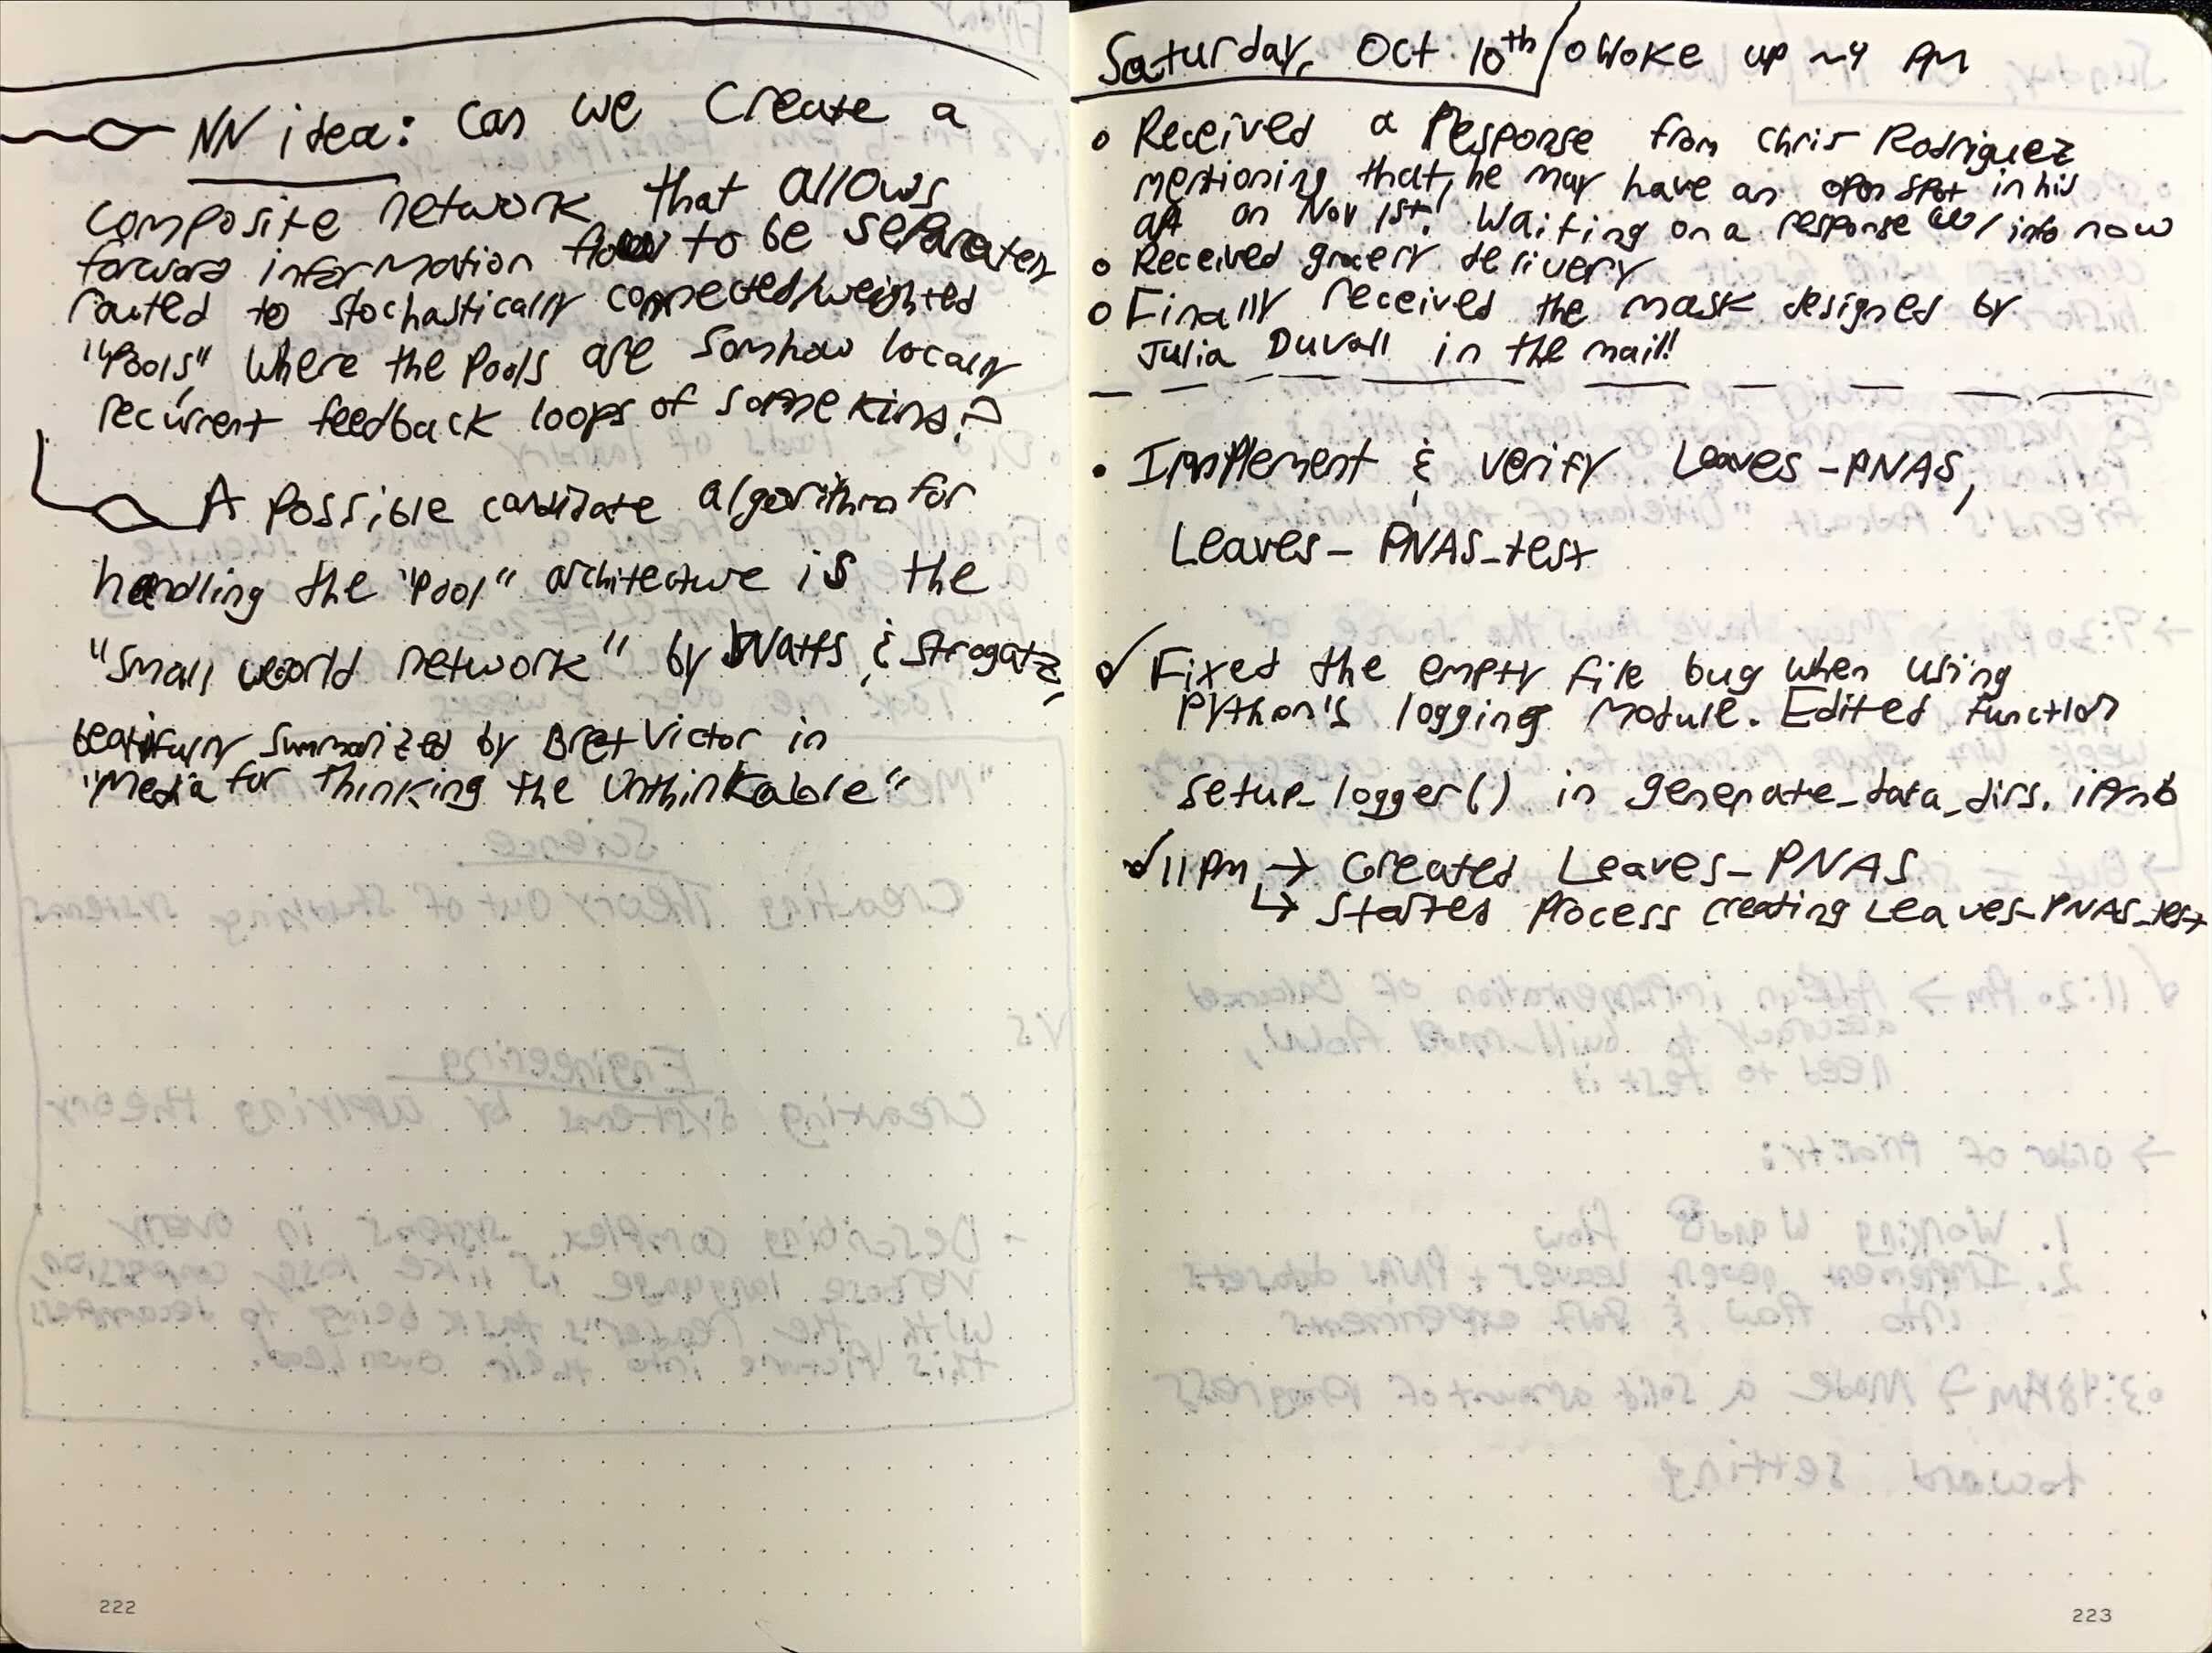 NN idea: Can we create a
composite network that allows
forward information flow to be separately
routed to stochastically connected/weighted
"Pools" where the pools are somhow locally
recurrent feedback loops of some kind?
A possible candidate algorithm for
handling the "pool" architecture is the
"small world network" by Watts & Strogatz,
beautifully summarized by Bret Victor in
"Media for Thinking the Unthinkable"
222
Saturday, Oct 10th / o Woke up ~4 PM
o Received a Response from Chris Rodriguez
mentioning that he may have an open spot in his
apt on Nov 1st! Waiting on a response w/ info now
o Received grocery delivery
o Finally received the mask designed by
Julia Duvall in the mail!
• Implement & verify Leaves-PNAS,
Leaves-PNAS_test
✓ Fixed the empty file bug when using
Python's logging module. Edited function
setup_logger() in generate_data_dirs.ipynb
✓ 11 PM → Created Leaves-PNAS
↳ Started process creating Leaves-PNAS_test
223